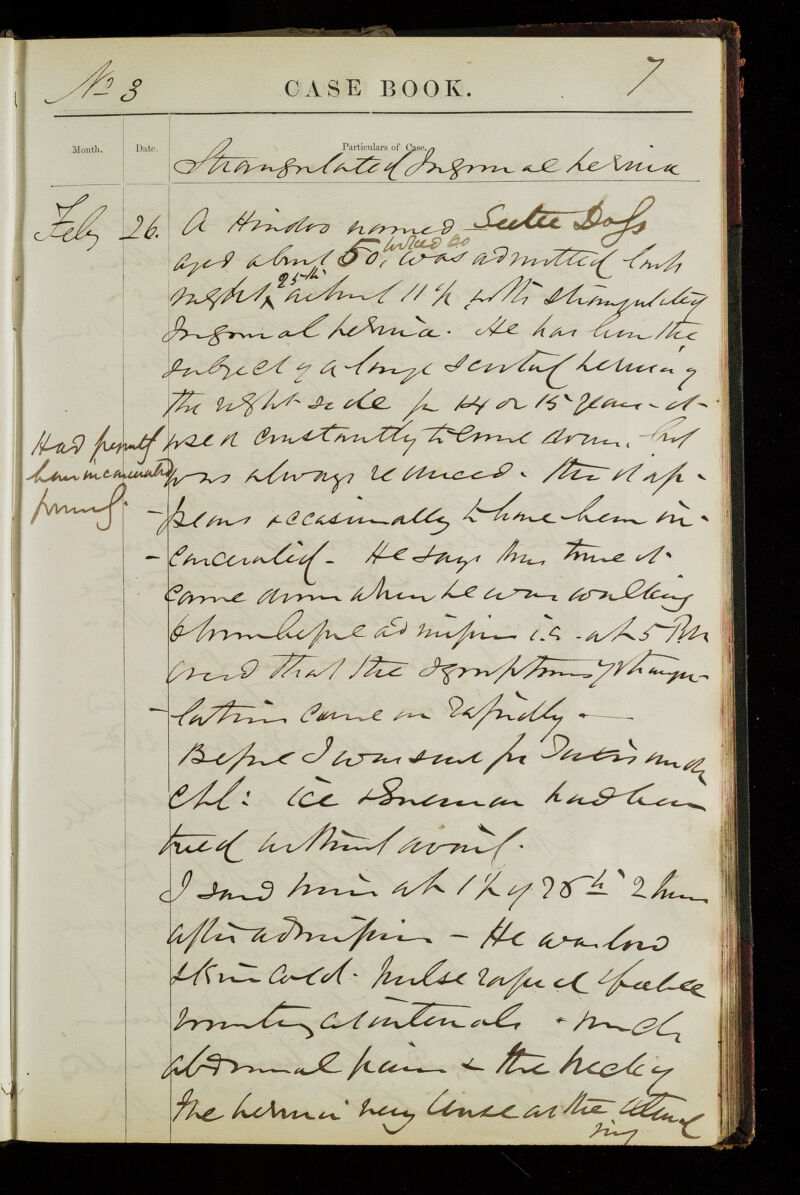 No 3
CASE BOOK.
7
Month.
Date.
Particulars of Case.
Strangulated Inguinal hernia
Feby 26. A Hindoo named Seetu Doss
aged about 50, was admitted last
night, 25th about 11 with strangulated
Inguinal hernia. He has been the
subject of a large scrotal hernia of
the right side for 14 or 15 years - it
used constantly to come down, but
was always reduced - tho it ap-
Had
been incarcerated
-pears occasionally to have been in-
-carcerated - He says this time it
came down when he was walking
6 hours before admission i.e. at 5 PM
and that the symptoms of strangu-
-lation came on rapidly -
Before I was sent for Taxis under
Chl: ice & enemas had been
tried without avail.
I saw him at 1 of 26th 2 hours
after admission - He was low
skin cold - pulse rapid & feeble
vomiting at intervals - much
abdominal pain & the neck of
the hernia very tense at the external
ring